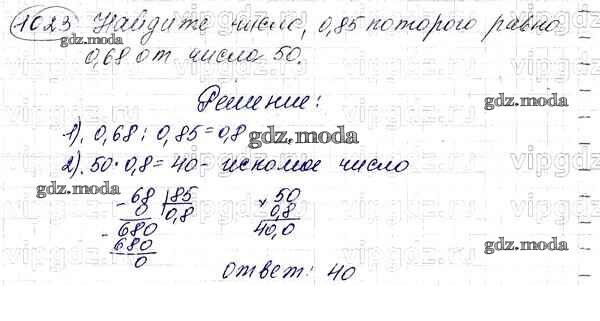 1023 Найдите число, 0,85 которого равно
0,68 от числа 50.
Решение:
1). 0,68 : 0,85 = 0,8
2). 50 · 0,8 = 40 - искомое число
- 68 | 85
0 | 0,8
- 680
680
0
× 50
0,8
40,0
ответ: 40
gdz.moda
gdz.moda
gdz.moda
gdz.moda
gdz.moda
gdz.moda